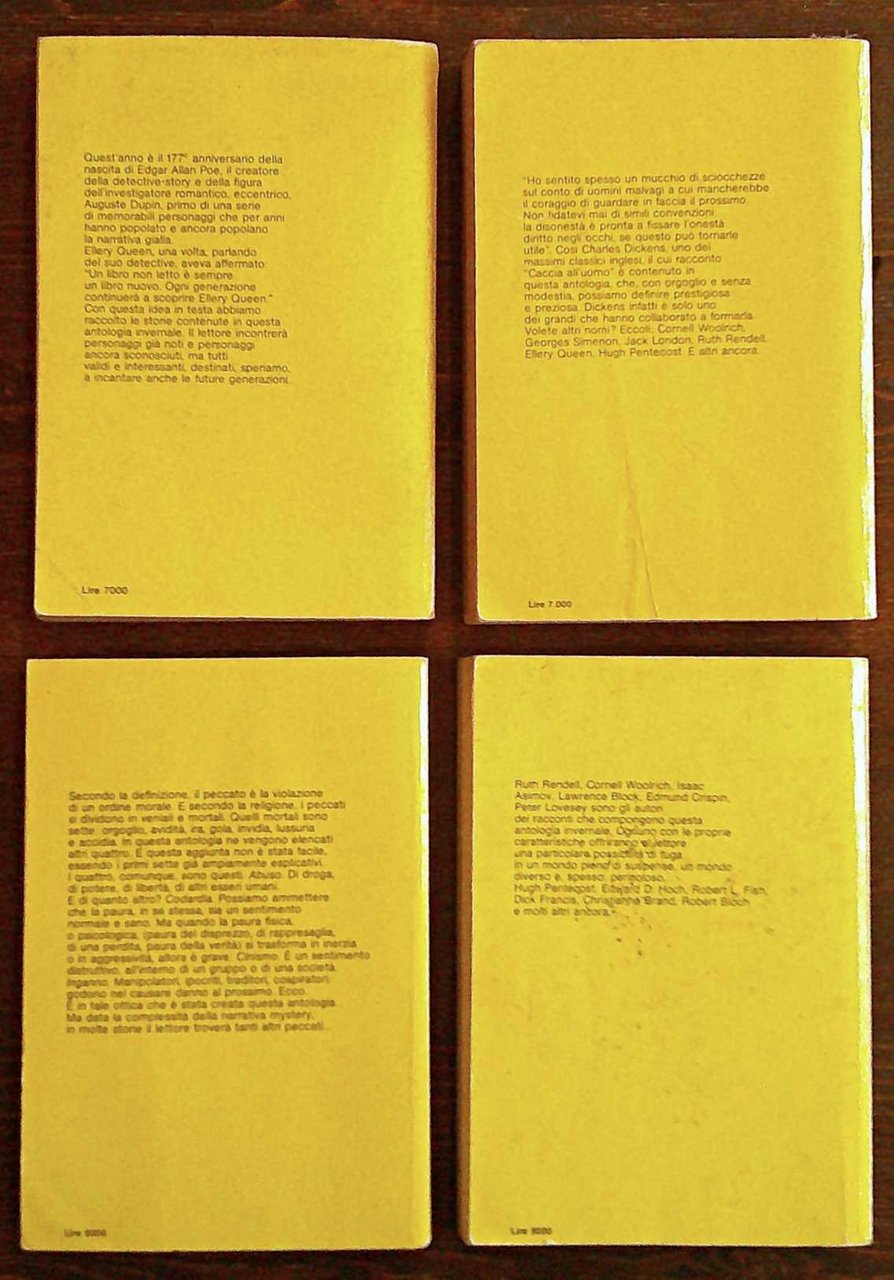 Quest'anno è il 177° anniversario della
nascita di Edgar Allan Poe, il creatore
della detective-story e della figura
dell'investigatore romantico, eccentrico,
Auguste Dupin, primo di una serie
di memorabili personaggi che per anni
hanno popolato e ancora popolano
la narrativa gialla.
Ellery Queen, una volta, parlando
del suo detective, aveva affermato:
"Un libro non letto è sempre
un libro nuovo. Ogni generazione
continuerà a scoprire Ellery Queen."
Con questa idea in testa abbiamo
raccolto le storie contenute in questa
antologia invernale. Il lettore incontrerà
personaggi già noti e personaggi
ancora sconosciuti, ma tutti
validi e interessanti, destinati, speriamo,
a incantare anche le future generazioni.
Lire 7000
"Ho sentito spesso un mucchio di sciocchezze
sul conto di uomini malvagi a cui mancherebbe
il coraggio di guardare in faccia il prossimo.
Non fidatevi mai di simili convenzioni:
la disonestà è pronta a fissare l'onestà
diritto negli occhi, se questo può tornarle
utile". Così Charles Dickens, uno dei
massimi classici inglesi, il cui racconto
"Caccia all'uomo" è contenuto in
questa antologia, che, con orgoglio e senza
modestia, possiamo definire prestigiosa
e preziosa. Dickens infatti è solo uno
dei grandi che hanno collaborato a formarla.
Volete altri nomi? Eccoli: Cornell Woolrich,
Georges Simenon, Jack London, Ruth Rendell,
Ellery Queen, Hugh Pentecost. E altri ancora.
Lire 7.000
Secondo la definizione, il peccato è la violazione
di un ordine morale. E secondo la religione, i peccati
si dividono in veniali e mortali. Quelli mortali sono
sette: orgoglio, avidità, ira, gola, invidia, lussuria
e accidia. In questa antologia ne vengono elencati
altri quattro. E questa aggiunta non è stata facile,
essendo i primi sette già ampiamente esplicativi.
I quattro, comunque, sono questi. Abuso. Di droga,
di potere, di libertà, di altri esseri umani.
E di quanto altro? Codardia. Possiamo ammettere
che la paura, in se stessa, sia un sentimento
normale e sano. Ma quando la paura fisica,
o psicologica, (paura del disprezzo, di rappresaglia,
di una perdita, paura della verità) si trasforma in inerzia
o in aggressività, allora è grave. Cinismo. È un sentimento
distruttivo, all'interno di un gruppo o di una società.
Inganno. Manipolatori, ipocriti, traditori, cospiratori
godono nel causare danno al prossimo. Ecco.
È in tale ottica che è stata creata questa antologia.
Ma data la complessità della narrativa mystery,
in molte storie il lettore troverà tanti altri peccati.
Lire
Ruth Rendell, Cornell Woolrich, Isaac
Asimov, Lawrence Block, Edmund Crispin,
Peter Lovesey sono gli autori
dei racconti che compongono questa
antologia invernale. Ognuno con le proprie
caratteristiche offriranno al lettore
una particolare possibilità di fuga
in un mondo pieno di suspense, un mondo
diverso e, spesso, pericoloso.
Hugh Pentecost, Edward D. Hoch, Robert L. Fish,
Dick Francis, Christianna Brand, Robert Bloch
e molti altri ancora.
Lire